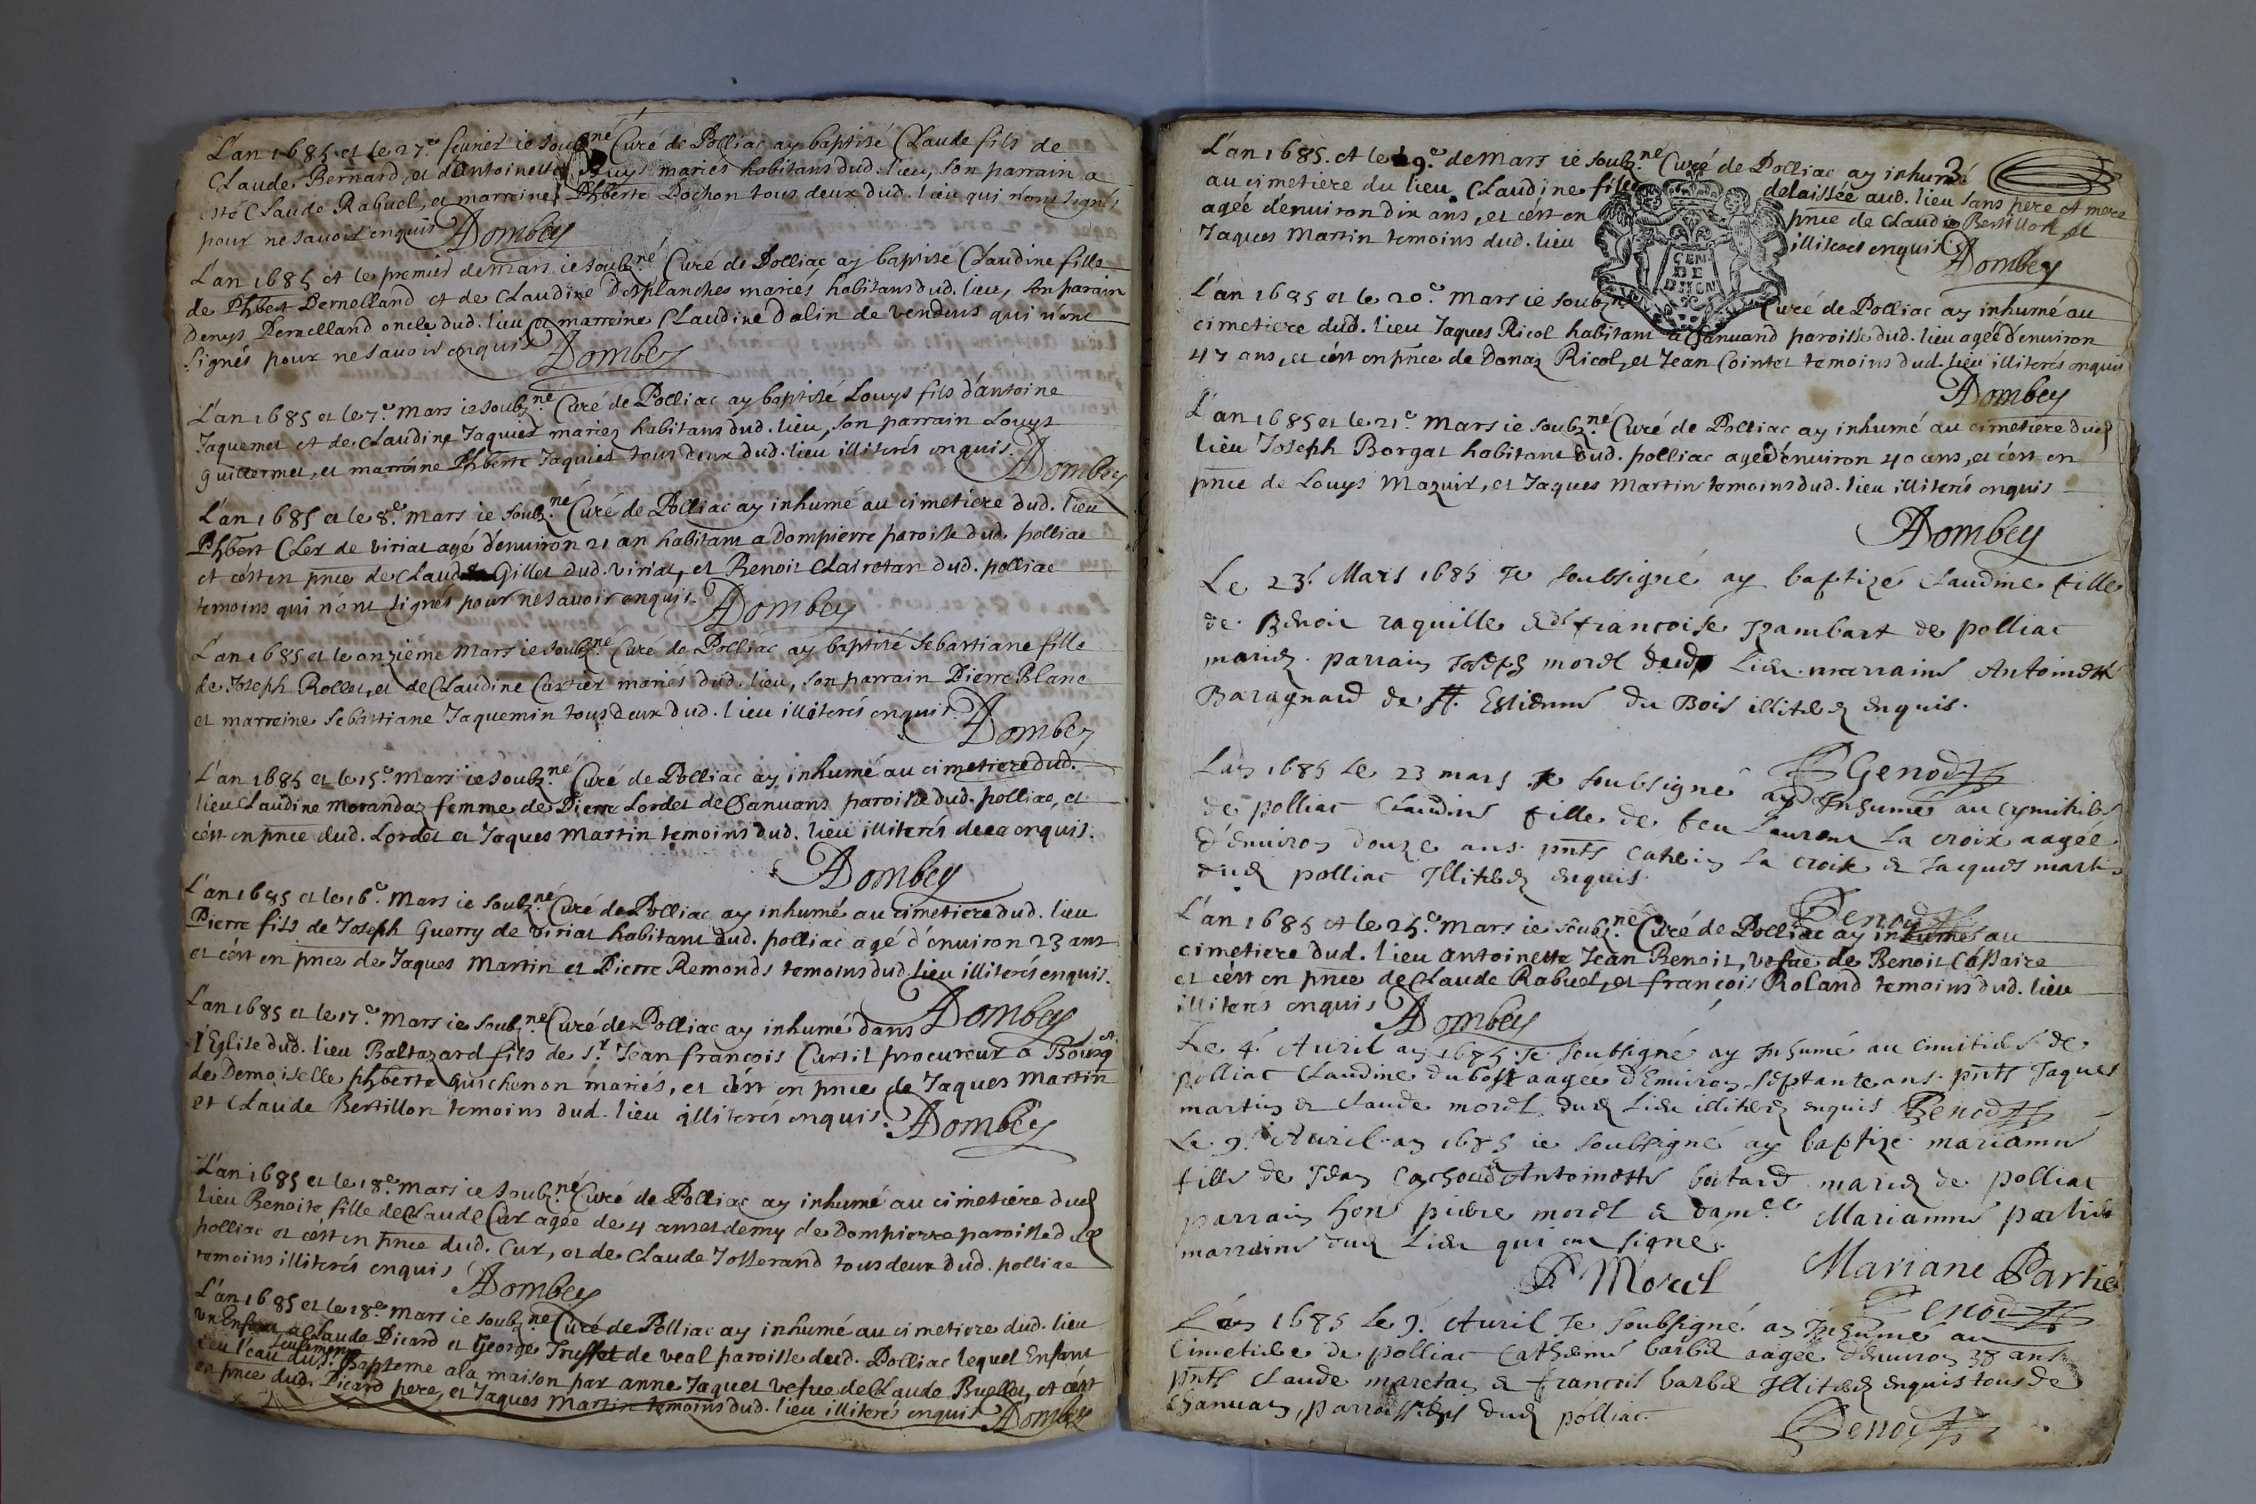 L'an 1685 et le 27.e feurier ie soub.né Curé de Polliac ay baptisé Claude fils de
Claude Bernard, et d'Antoinette mariés habitans dud. lieu, son parrain a
esté Claude Rabuel, et marreine Phberte Pochon tous deux dud. lieu qui n'ont signés
pour ne savoir enquis Dombey
L'an 1685 et le premier de mars ie soubz.né Curé de Polliac ay baptisé Claudine fille
de Phbert Pernelland et de Claudine Desplanches mariés habitans dud. lieu, son parain
Denys Pernelland oncle dud. lieu et marreine Claudine Dalin de Vendins qui n'ont
signés pour ne savoir enquis Dombey
L'an 1685 et le 7.e Mars ie soubz.né Curé de Polliac ay baptisé Louys fils d'antoine
Jaquemet et de Claudine Jaquier mariez habitans dud. lieu, son parrain Louys
guillermet, et marreine Phberte Jaquier tous deux dud. lieu illiterés enquis. Dombey
L'an 1685 et le 8.e Mars ie soubz.né Curé de Polliac ay inhumé au cimetiere dud. lieu
Phbert Cler de viriat agé d'enuiron 21 an habitant a Dompierre paroisse dud. polliac
et c'est en pnce de Claude Gillet dud. Viriat, et Benoit Clairetan dud. polliac
temoins qui n'ont signés pour ne savoir enquis. Dombey
L'an 1685 et le onzieme Mars ie soubz.né Curé de Polliac ay baptisé Sebastiane fille
de Joseph Rollet, et de Claudine Cartier mariés dud. lieu, son parrain Pierre Blanc
et marreine Sebastiane Jaquemin tous deux dud. lieu illiterés enquis. Dombey
L'an 1685 et le 15.e Mars ie soubz.né Curé de Polliac ay inhumé au cimetiere dud.
lieu Claudine morandaz femme de Pierre Lordet de Chanuans paroisse dud. polliac, et
c'est en pnce dud. Lordet et Jaques Martin temoins dud. lieu illiterés de ce enquis.
Dombey
L'an 1685 et le 16.e Mars ie soubz.né Curé de Polliac ay inhumé au cimetiere dud. lieu
Pierre fils de Joseph Guerry de viriat habitant dud. polliac agé d'enuiron 23 ans
et c'est en pnce de Jaques Martin et Pierre Remonds temoins dud. lieu illiterés enquis.
Dombey
L'an 1685 et le 17.e Mars ie soubz.né Curé de Polliac ay inhumé dans
l'Eglise dud. lieu Baltazard fils de S.r Jean françois Curtil procureur a Bourg et
de Demoiselle phberte Guichenon mariés, et c'est en pnce de Jaques Martin
et Claude Bertillon temoins dud. lieu illiterés enquis. Dombey
L'an 1685 et le 18.e Mars ie soubz.né Curé de Polliac ay inhumé au cimetiere dud
lieu Benoite fille de Claude Cur agée de 4 ans et demy de Dompierre paroisse dud
polliac et c'est en pnce dud. Cur, et de Claude Josserand tous deux dud. polliac
temoins illiterés enquis Dombey
L'an 1685 et le 18.e Mars ie soubz.né Curé de Polliac ay inhumé au cimetiere dud. lieu
un Enfant a Claude Picard et George Truffet de veal paroisse dud. Polliac lequel Enfant
seulement
eeu l'eau du St. Bapteme a la maison par anne Jaquet vefue de Claude Buellet, et c'est
en pnce dud. Picard pere, et Jaques Martin temoins dud. lieu illiterés enquis Dombey
3
L'an 1685. et le 19.e de Mars ie soubz.né Curé de Polliac ay inhumé
au cimetiere du lieu Claudine fille delaissée aud. lieu sans pere et mere
agée d'enuiron dix ans, et c'est en pnce de Claude Bertillon, et
Jaques Martin temoins dud. lieu illiterés enquis Dombey
GEN
DE
DIION
L'an 1685 et le 20.e Mars ie soubz.né Curé de Polliac ay inhumé au
cimetiere dud. lieu Jaques Ricol habitant a Chanuand paroisse dud. lieu agé d'enuiron
47 ans, et c'est en pnce de Donaz Ricol, et Jean Cointet temoins dud. lieu illiterés enquis
Dombey
L'an 1685 et le 21.e Mars ie soubz.né Curé de Polliac ay inhumé au cimetiere dud
lieu Joseph Borgat habitant dud. polliac agé d'enuiron 40 ans, et c'est en
pnce de Louys Mazuir, et Jaques Martin temoins dud. lieu illiterés enquis
Dombey
Le 23. Mars 1685 Je soubsigné ay baptizé Claudine fille
de Benoit raquille & de francoise Rambart de polliac
mariez. parrain Joseph morel dud lieu marraine Antoinette
Baragnard de St. Estienne du Bois illiterez enquis.
Genod
Lan 1685 Le 23 mars Je soubsigné ay Inhumé au cymitiere
de polliac Claudine fille de feu Laurent La croix aagée
d'enuiron douze ans. pnts Catherin La croix & Jacques martin
dud polliac Illiterez enquis.
Genod
L'an 1685 et le 25.e Mars ie soubz.né Curé de Polliac ay inhumé au
cimetiere dud. lieu Antoinette Jean Benoit, vefue de Benoit Cossaire
et c'est en pnce de Claude Rabuel, et françois Roland temoins dud. lieu
illiterés enquis Dombey
Le 4. Auril an 1685. Je soubsigné ay Inhumé au cimitiere de
Polliac Claudine dubost aagée d'Enuiron septante ans. pnts Jaques
martin & Claude morel dud Lieu illiterez enquis Genod
Le 9. Auril an 1685 ie soubsigné ay baptizé marianne
fille de Jean Cochoud & Antoinette batard mariez de polliac
parrain hon. pierre morel & dam.lle Marianne partie
marraine dud Lieu qui on signe.
P Morel Mariane Partie
Genod
Lan 1685 Le 9. Auril Je soubsigné ay Inhumé au
Cimetiere de polliac Catherine barbe aagée d'enuiron 38 ans
pnts Claude maretan & francois barbe Illiterez enquis tous de
Chanuan, parroissiens dud polliac.
Genod